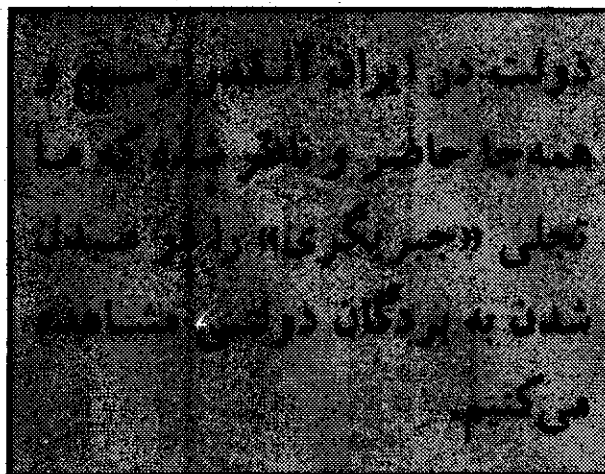 دولت در ایران آنقدر وسیع و
همه‌جا حاضر و ناظر شده که ما
تجلی «جبریگری» را در مبدل
شدن به بردگان دولتی مشاهده
می‌کنیم.